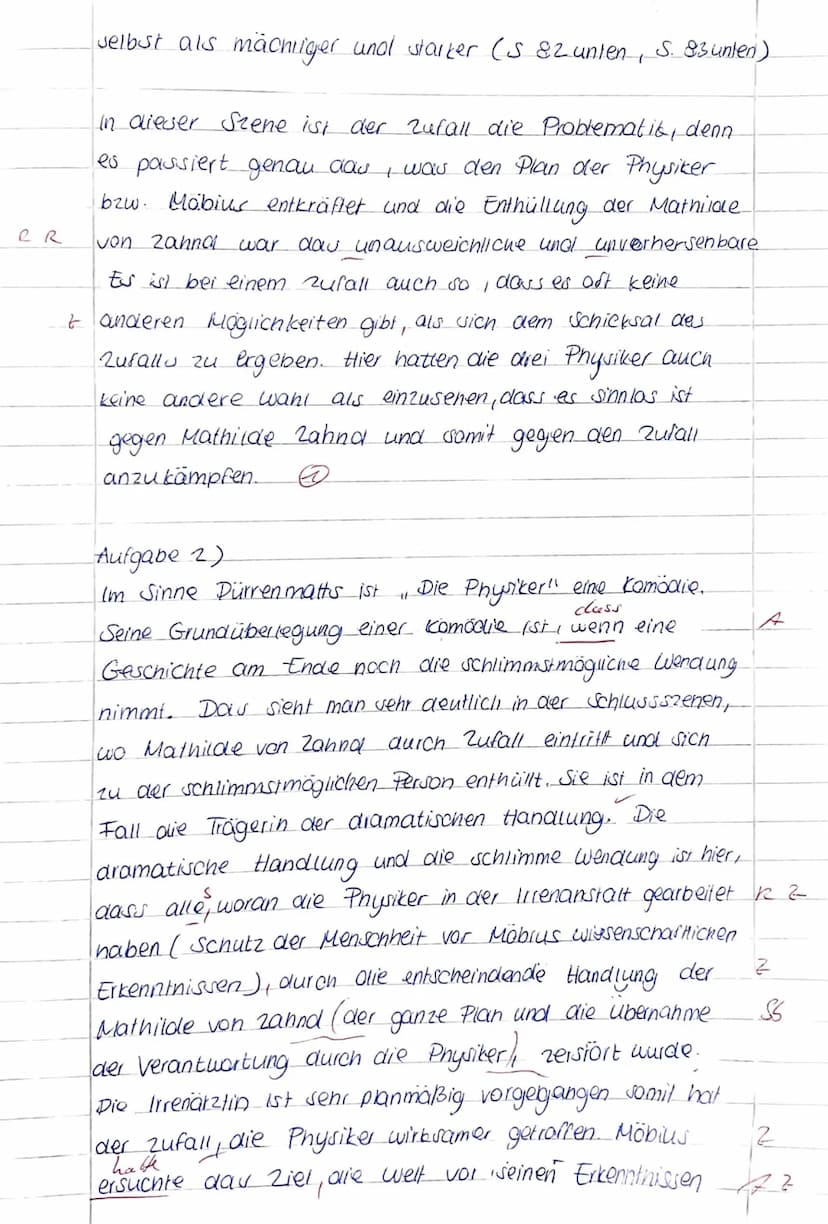 selbst als mächtiger und starker (S 82 unten, S. 83 unten)
In dieser Szene ist der Zufall die Problematik, denn
es passiert genau das, was den Plan der Physiker
bzw. Möbius entkräftet und die Enthüllung der Mathilde
R R von Zahnd war das unausweichliche und unvorhersenbare
Es ist bei einem Zufall auch so, dass es oft keine
z anderen Möglichkeiten gibt, als sich dem Schicksal des
Zufalls zu ergeben. Hier hatten die drei Physiker auch
keine andere Wahl als einzusehen, dass es sinnlos ist
gegen Mathilde Zahnd und somit gegen den Zufall
anzukämpfen.
Aufgabe 2)
Im Sinne Dürrenmatts ist „Die Physiker" eine Komödie.
dass
Seine Grundüberlegung einer Komödie ist, wenn eine A
Geschichte am Ende noch die schlimmstmögliche Wendung
nimmt. Das sieht man sehr deutlich in der Schlussszenen,
wo Mathilde von Zahnd durch Zufall eintrifft und sich
zu der schlimmstmöglichen Person enthüllt. Sie ist in dem
Fall die Trägerin der dramatischen Handlung. Die
dramatische Handlung und die schlimme Wendung ist hier,
s
dass alle, woran die Physiker in der Irrenanstalt gearbeitet R Z
haben (Schutz der Menschheit vor Möbius wissenschaftlichen
Erkenntnissen), durch die entscheindende Handlung der Z
Mathilde von Zahnd (der ganze Plan und die Übernahme Sb
der Verantwortung durch die Physiker), zerstört wurde.
Die Irrenärztin ist sehr planmäßig vorgegangen somit hat
der Zufall, die Physiker wirksamer getroffen. Möbius Z
hatte
ersuchte das Ziel, die Welt vor seinen Erkenntnissen A Z